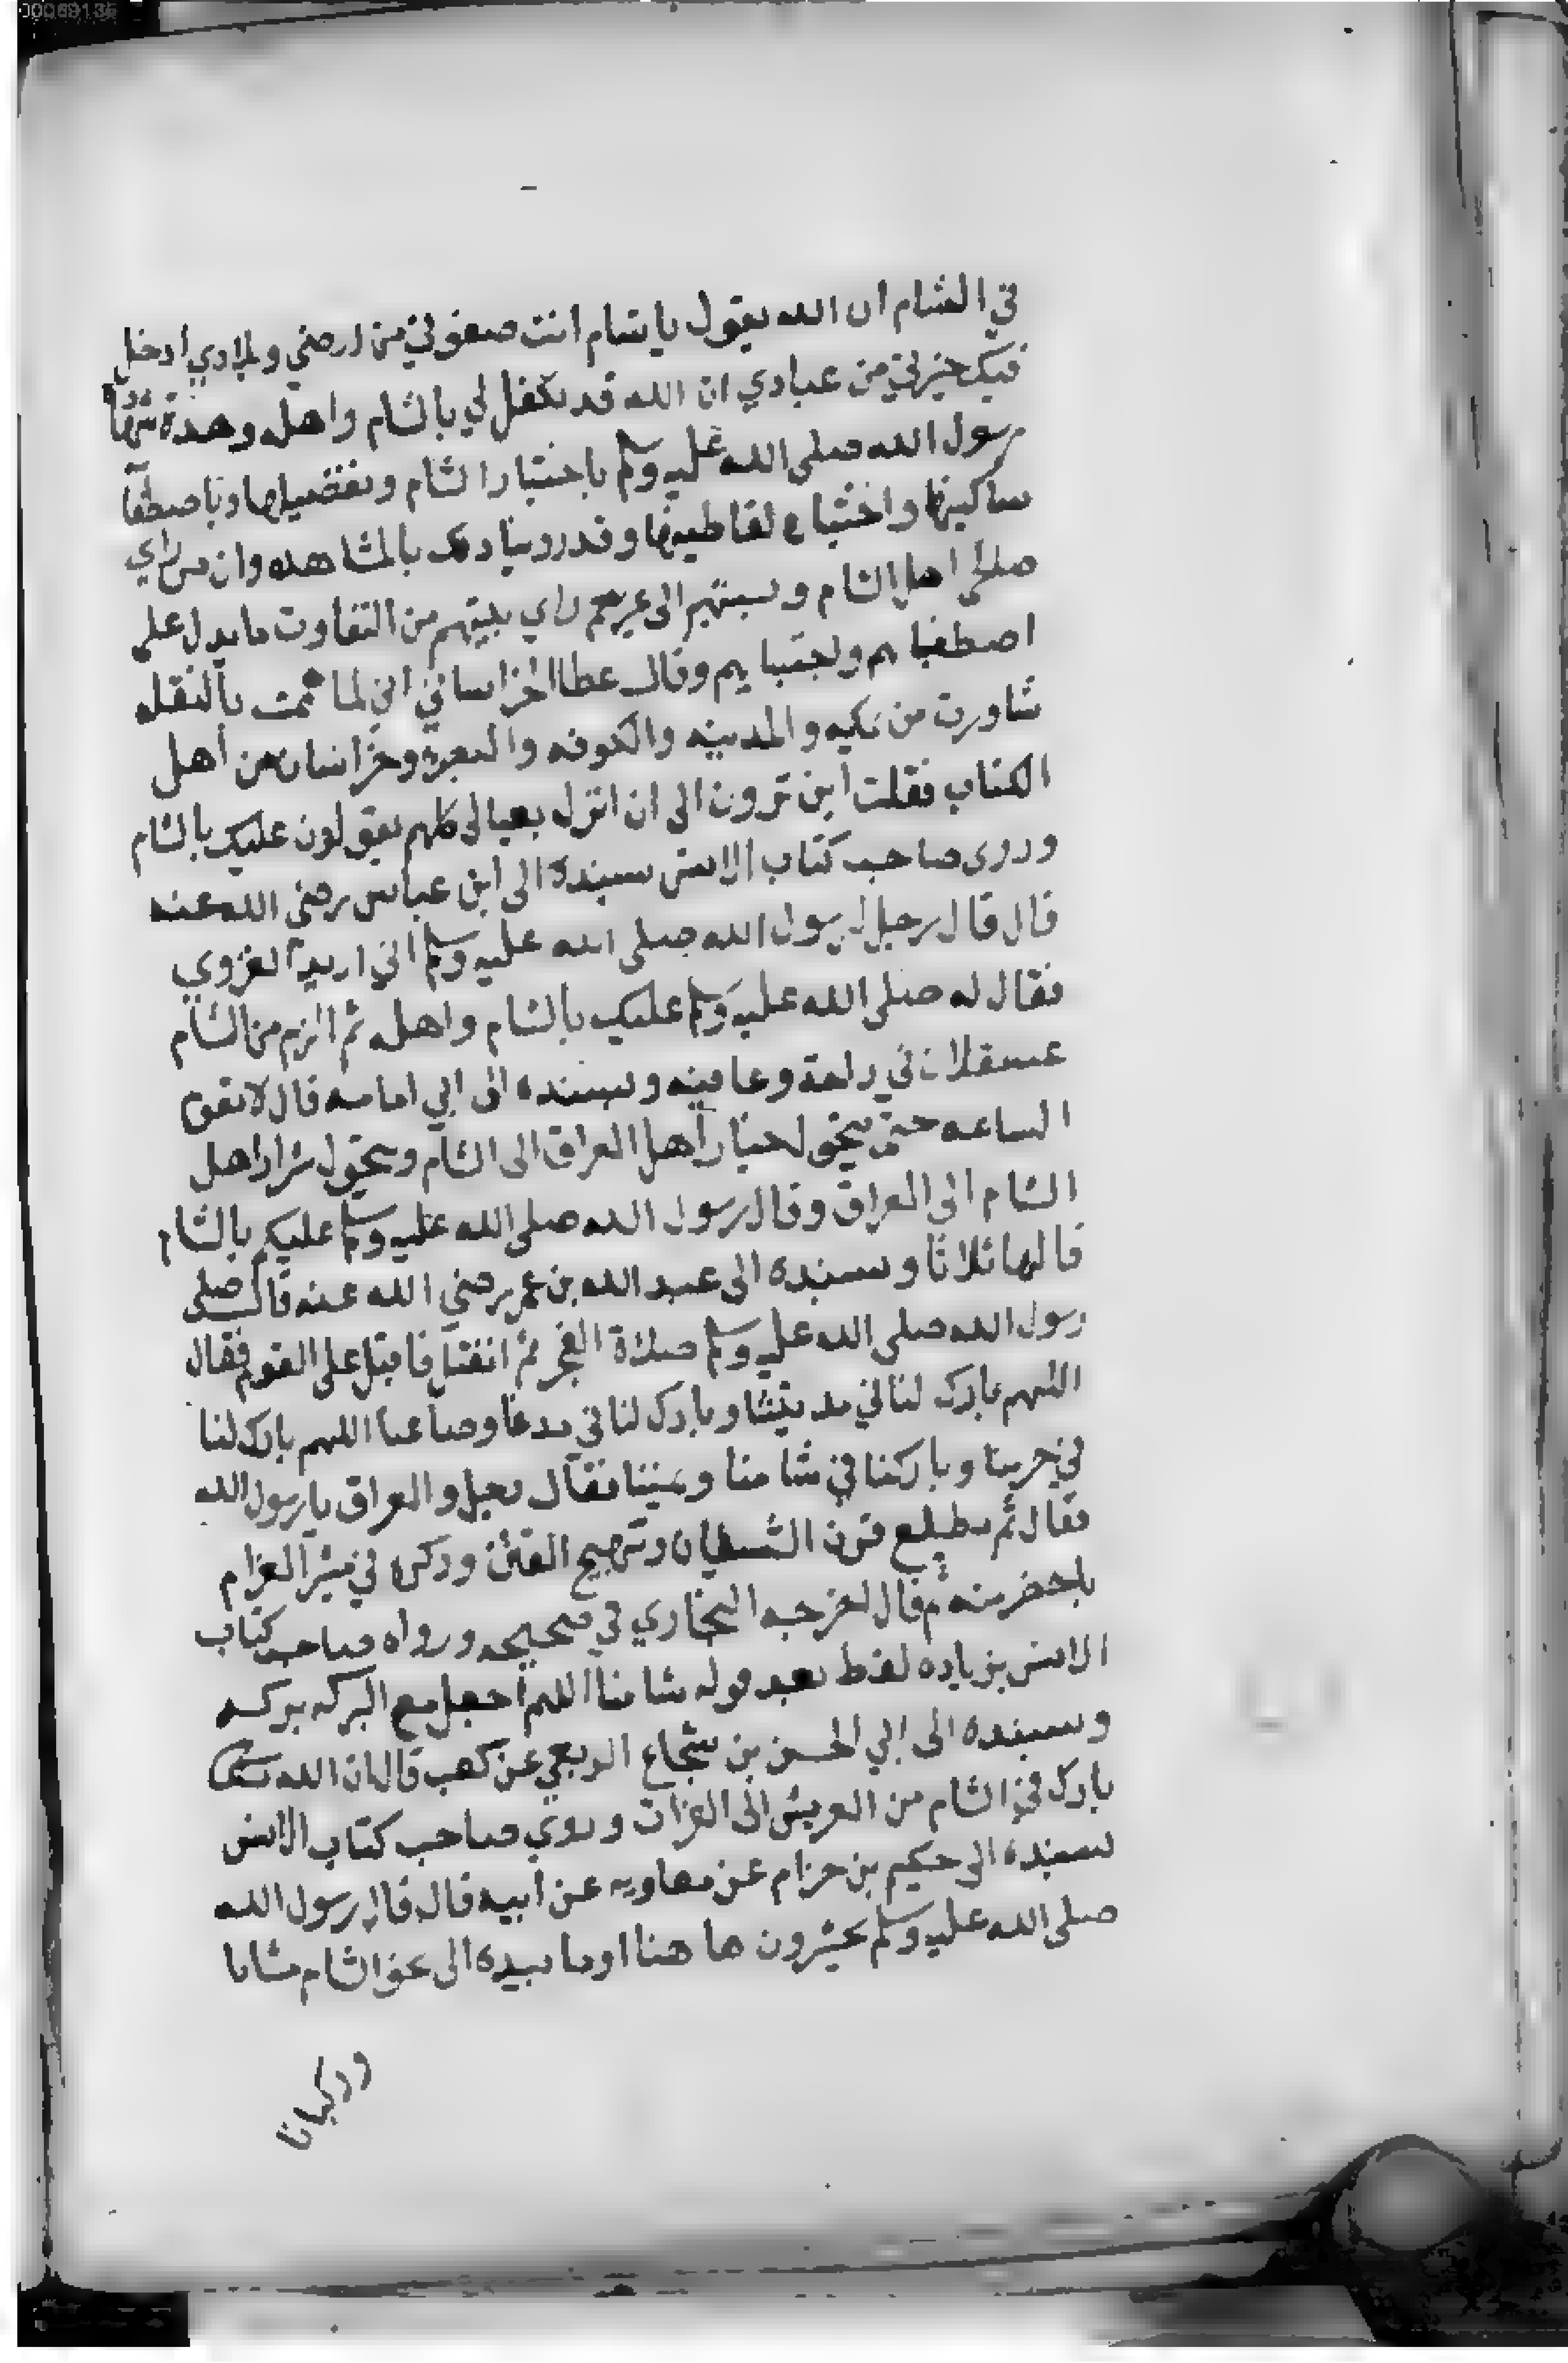 في الشام ان الله يقول يا شام انت صفوتي من ارضي وبلادي ادخل
فيك خيرتي من عبادي ان الله قد تكفل لي بالشام واهله وهذة شهادة
رسول الله صلى الله عليه وسلم باختيار الشام وتفضيلها وباصطفآ
ساكنيها واختياره لقاطنيها وقد روينا ذلك بالمشاهده وان من راي
صلحى اهل الشام ونسبتهم الى غيرهم راي بينهم من التفاوت ما يدل على
اصطفايهم واجتبايهم وقال عطا الخراساني اني لما هممت بالنقله
شاورت من بمكه والمدينه والكوفه والبصرة وخراسان من أهل
الكتاب فقلت أين ترون الى ان انزل بعيالى كلهم يقولون عليك بالشام
وروى صاحب كتاب الانس بسندة الى ابن عباس رضى الله عنه
قال قال رجل لرسول الله صلى الله عليه وسلم اني اريد الغزوي
فقال له صلى الله عليه وسلم عليك بالشام واهله ثم الزم من الشام
عسقلان في وعافيه وبسنده الى ابي امامه قال لا تقوم
الساعه حتى يتحول خيار أهل العراق الى الشام ويتحول شرار اهل
الشام الى العراق وقال رسول الله صلى الله عليه وسلم عليكم بالشام
قالها ثلاثا وبسنده الى عبد الله بن عمر رضي الله عنه قال صلى
رسول الله صلى الله عليه وسلم صلاة الفجر ثم انفتل فاقبل على القوم فقال
اللهم بارك لنا في مدينتنا وبارك لنا في مدنا وصاعنا اللهم بارك لنا
في حرمنا وباركنا في شامنا ويمننا فقال رجل والعراق يا رسول الله
فقال ثم يطلع قرن الشيطان وتهيج الفتن وذكره في مثير الغرام
بلخضر منه ثم قال اخرجه البخاري في صحيحه ورواه صاحب كتاب
الانس بزياده لفظ بعد قوله شامنا اللهم اجعل مع البركه بركه
وبسنده الى ابي الحسن بن شجاع الربعي عن كعب قال ان الله تعالى
بارك في الشام من العريش الى الفرات وروي صاحب كتاب الانس
بسنده الى حكيم بن حزام عن معاويه عن أبيه قال قال رسول الله
صلى الله عليه وسلم تحشرون ها هنا اوما بيده الى نحو الشام مشاتا
وركبانا